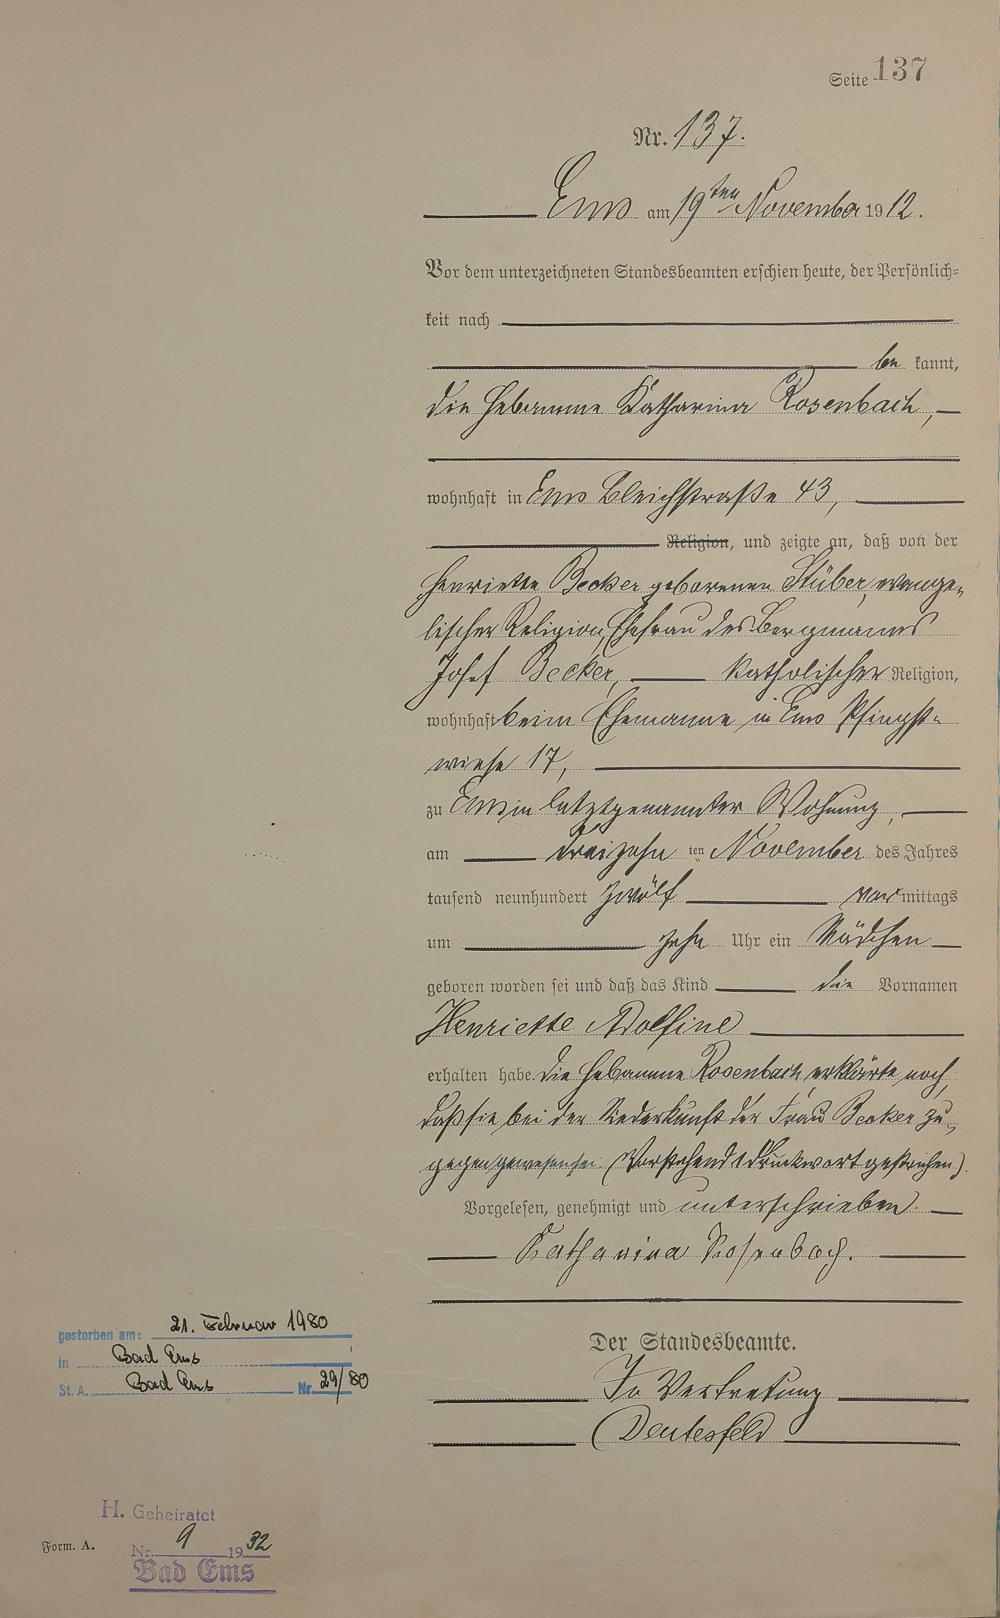 Seite 137
Nr. 137.
Ems am 19ten November 1912.
Vor dem unterzeichneten Standesbeamten erschien heute, der Persönlich-
keit nach
be kannt,
die Hebamme Katharina Rosenbach,
wohnhaft in Ems Bleichstraße 43,
Religion, und zeigte an, daß von der
Henriette Becker geborenen Stüber, evange-
lischer Religion, Ehefrau des Bergmanns
Josef Becker, katholischer Religion,
wohnhaft beim Ehemanne in Ems Pfingst-
wiese 17,
zu Ems in letztgenannter Wohnung,
am dreizehn ten November des Jahres
tausend neunhundert zwölf vor mittags
um zehn Uhr ein Mädchen
geboren worden sei und daß das Kind die Vornamen
Henriette Adolfine
erhalten habe. Die Hebamme Rosenbach erklärte noch,
daß sie bei der Niederkunft der Frau Becker zu-
gegen gewesen sei. (Vorstehend 1 Druckwort gestrichen).
Vorgelesen, genehmigt und unterschrieben.
Katharina Rosenbach.
Der Standesbeamte.
In Vertretung
Deutesfeld
gestorben am: 21. Februar 1980
in Bad Ems
St. A. Bad Ems Nr. 29/80
H. Geheiratet
Form. A.
Nr. 9 1932
Bad Ems